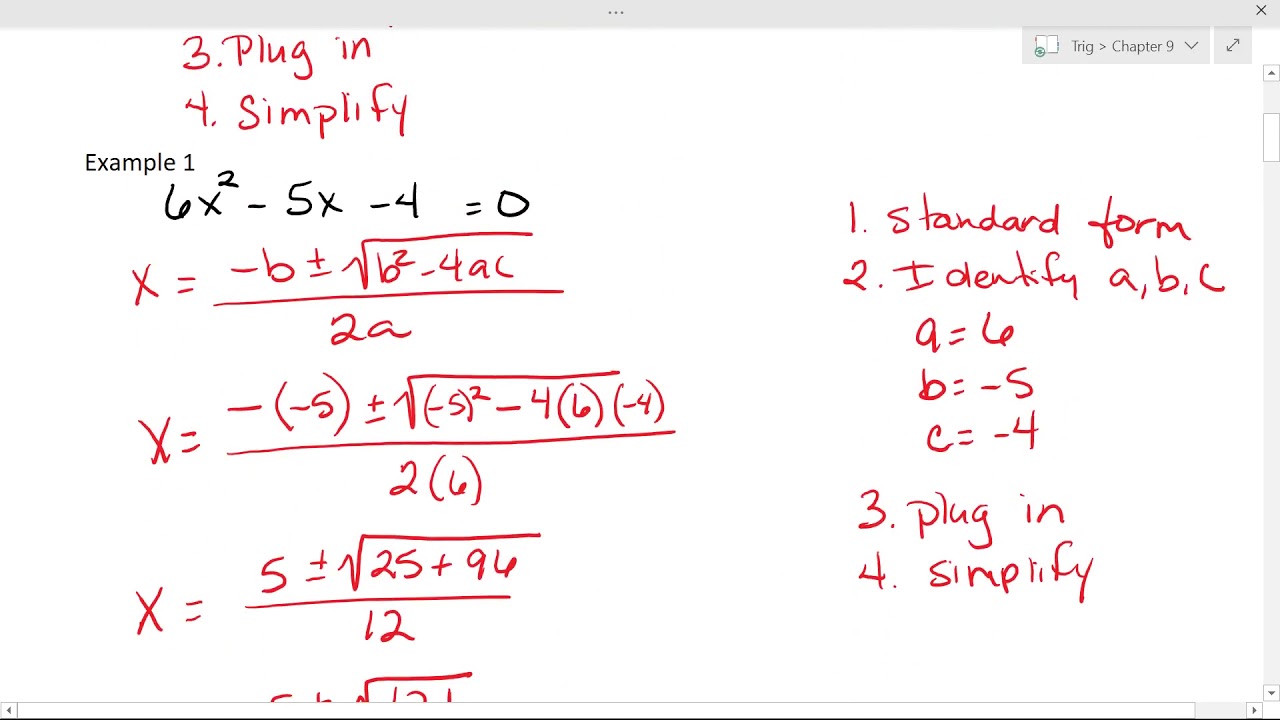 Trig > Chapter 9
3. Plug in
4. Simplify
Example 1
6x² - 5x - 4 = 0
x = (-b ± √(b² - 4ac)) / 2a
x = (-(-5) ± √((-5)² - 4(6)(-4))) / 2(6)
x = (5 ± √(25 + 96)) / 12
5 ± √121
1. Standard form
2. Identify a, b, c
a = 6
b = -5
c = -4
3. plug in
4. simplify